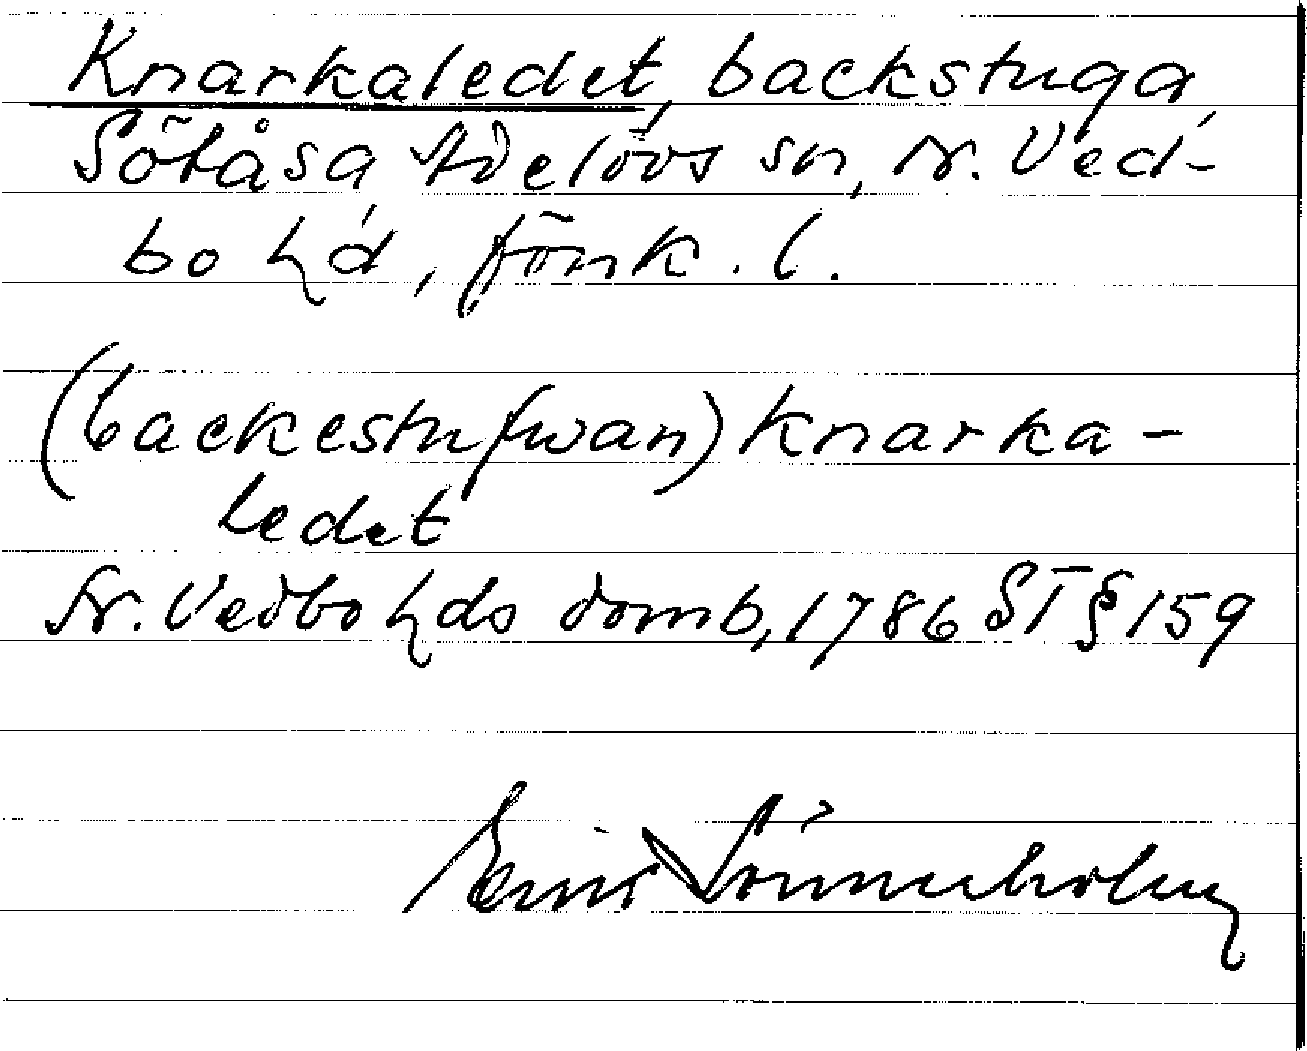 Knarkaledet, backstuga
Sötåsa Adelövs sn, N. Ved-
bo hd, Jönk. l.
(backestufwan) Knarka-
ledet
N. Vedbo hds domb, 1786 ST § 159